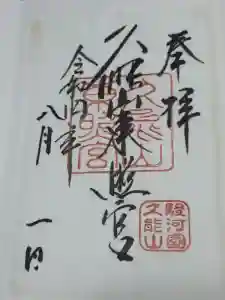 奉拝
久能山東照宮
令和四年
八月一日
駿河國
久能山